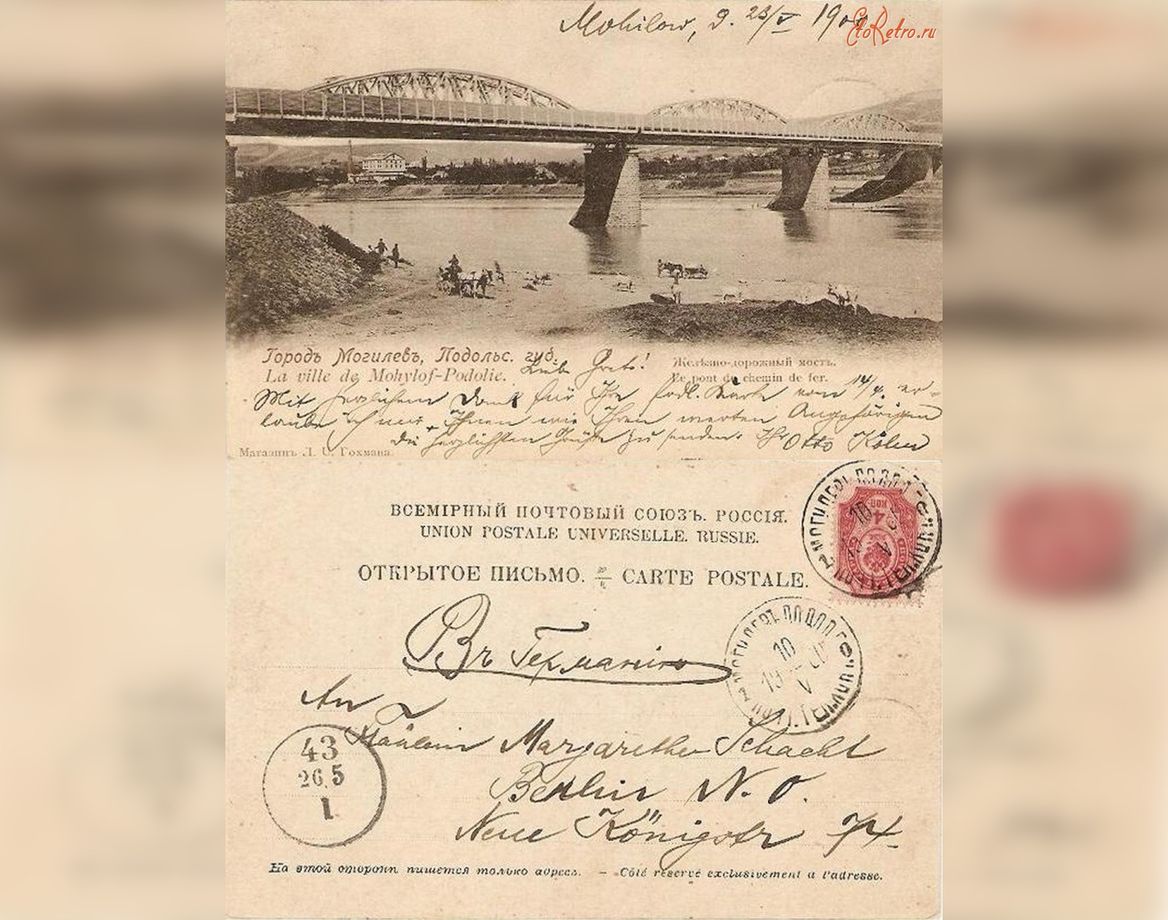 Mohilow, d. 23/V 190
EtoRetro.ru
Городъ Могилевъ, Подольс. губ.
La ville de Mohylof-Podolie.
Желѣзно-дорожный мостъ.
Le pont du chemin de fer.
Mit herzlichem Dank für Ihre frdl. Karte vom 14/4. er-
laube ich mir Ihnen wie Ihren werten Angehörigen
die herzlichsten Grüße zu senden. Ihr Otto
Магазинъ Л. С. Гохмана.
ВСЕМІРНЫЙ ПОЧТОВЫЙ СОЮЗЪ. РОССІЯ.
UNION POSTALE UNIVERSELLE. RUSSIE.
ОТКРЫТОЕ ПИСЬМО. CARTE POSTALE.
4 КОП
10
V
МОГИЛЕВЪ ПОДОЛ
10
V
Въ Германію
An
Fräulein Margarethe Schacht
Berlin N. O.
Neue Königstr 74.
43
26.5
1
На этой сторонѣ пишется только адресъ. — Côté réservé exclusivement à l'adresse.